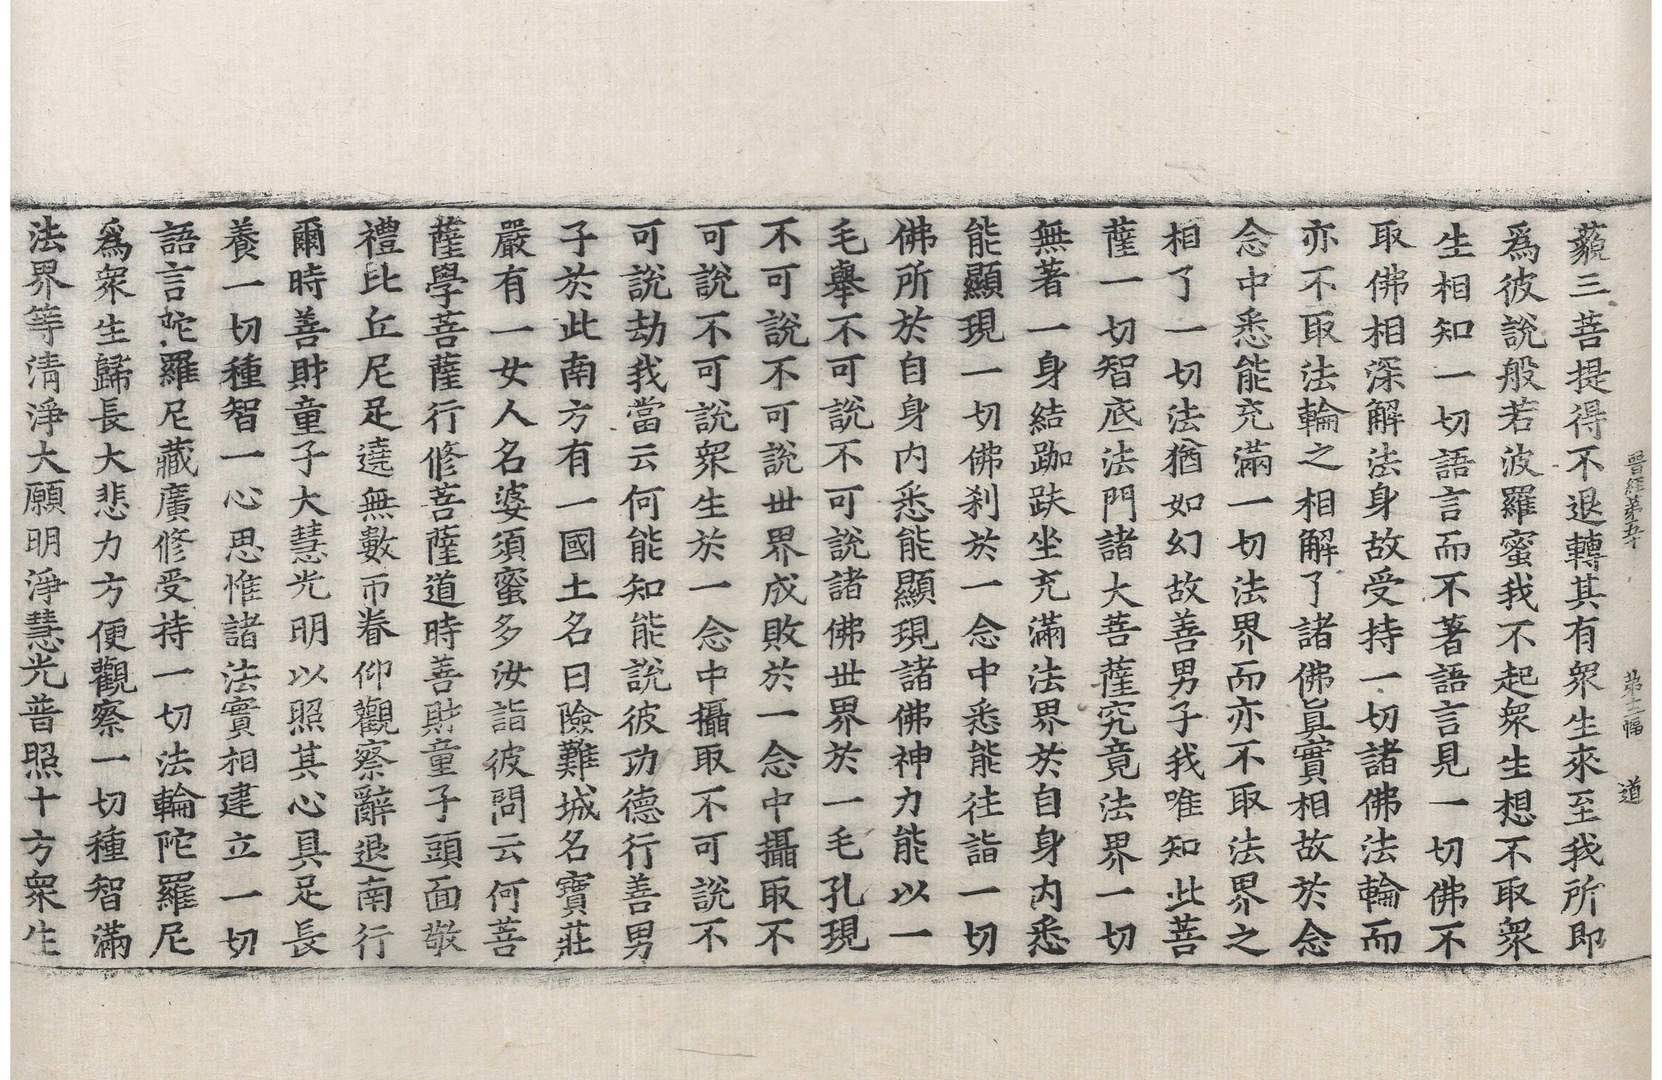 晉經第五十 道
藐三菩提得不退轉其有眾生來至我所即
爲彼說般若波羅蜜我不起眾生想不取眾
生相知一切語言而不著語言見一切佛不
取佛相深解法身故受持一切諸佛法輪而
亦不取法輪之相解了諸佛眞實相故於念
念中悉能充滿一切法界而亦不取法界之
相了一切法猶如幻故善男子我唯知此菩
薩一切智底法門諸大菩薩究竟法界一切
無著一身結跏趺坐充滿法界於自身內悉
能顯現一切佛刹於一念中悉能往詣一切
佛所於自身內悉能顯現諸佛神力能以一
毛舉不可說不可說諸佛世界於一毛孔現
不可說不可說世界成敗於一念中攝取不
可說不可說眾生於一念中攝取不可說不
可說劫我當云何能知能說彼功德行善男
子於此南方有一國土名曰險難城名寶莊
嚴有一女人名婆須蜜多汝詣彼問云何菩
薩學菩薩行修菩薩道時善財童子頭面敬
禮比丘尼足遶無數帀眷仰觀察辭退南行
爾時善財童子大慧光明以照其心具足長
養一切種智一心思惟諸法實相建立一切
語言陀羅尼藏廣修受持一切法輪陀羅尼
爲眾生歸長大悲力方便觀察一切種智滿
法界等清淨大願明淨慧光普照十方眾生